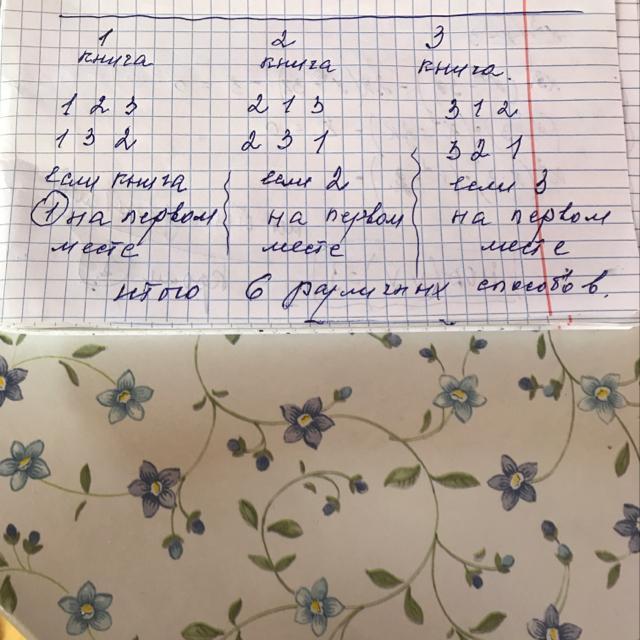 1 2 3
книга книга книга.
1 2 3 2 1 3 3 1 2
1 3 2 2 3 1 3 2 1
если книга если 2 если 3
1 на первом на первом на первом
месте месте месте
итого 6 различных способов.